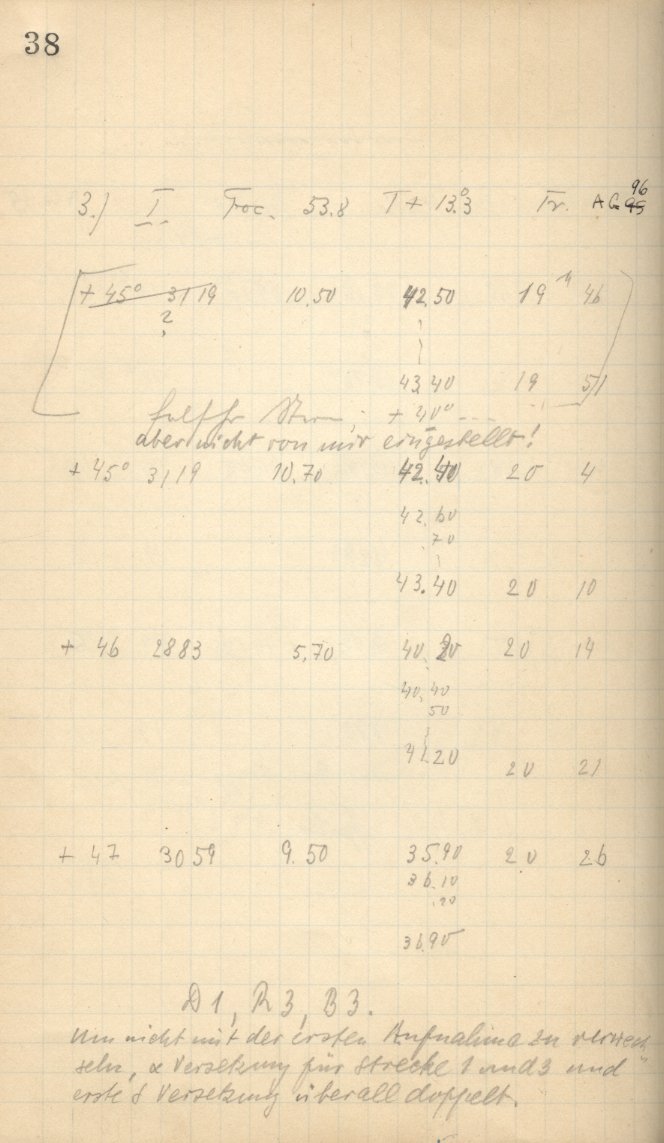 38
3.) I. Foc. 53.8 T + 13.°3 Fr. AG 95 96
+ 45° 3119 10.50 42.50 19 h 46
?
43.40 19 51
Stern, + 40°
aber nicht von mir eingestellt!
+ 45° 3119 10.70 42.40 20 4
42.60
.70
43.40 20 10
+ 46 2883 5.70 40.20 20 14
40.40
50
41.20 20 21
+ 47 3059 9.50 35.90 20 26
36.10
.20
36.90
D1, R3, B3.
Um nicht mit der ersten Aufnahme zu verwech
seln, α Versetzung für Strecke 1 und 3 und
erste δ Versetzung überall doppelt.